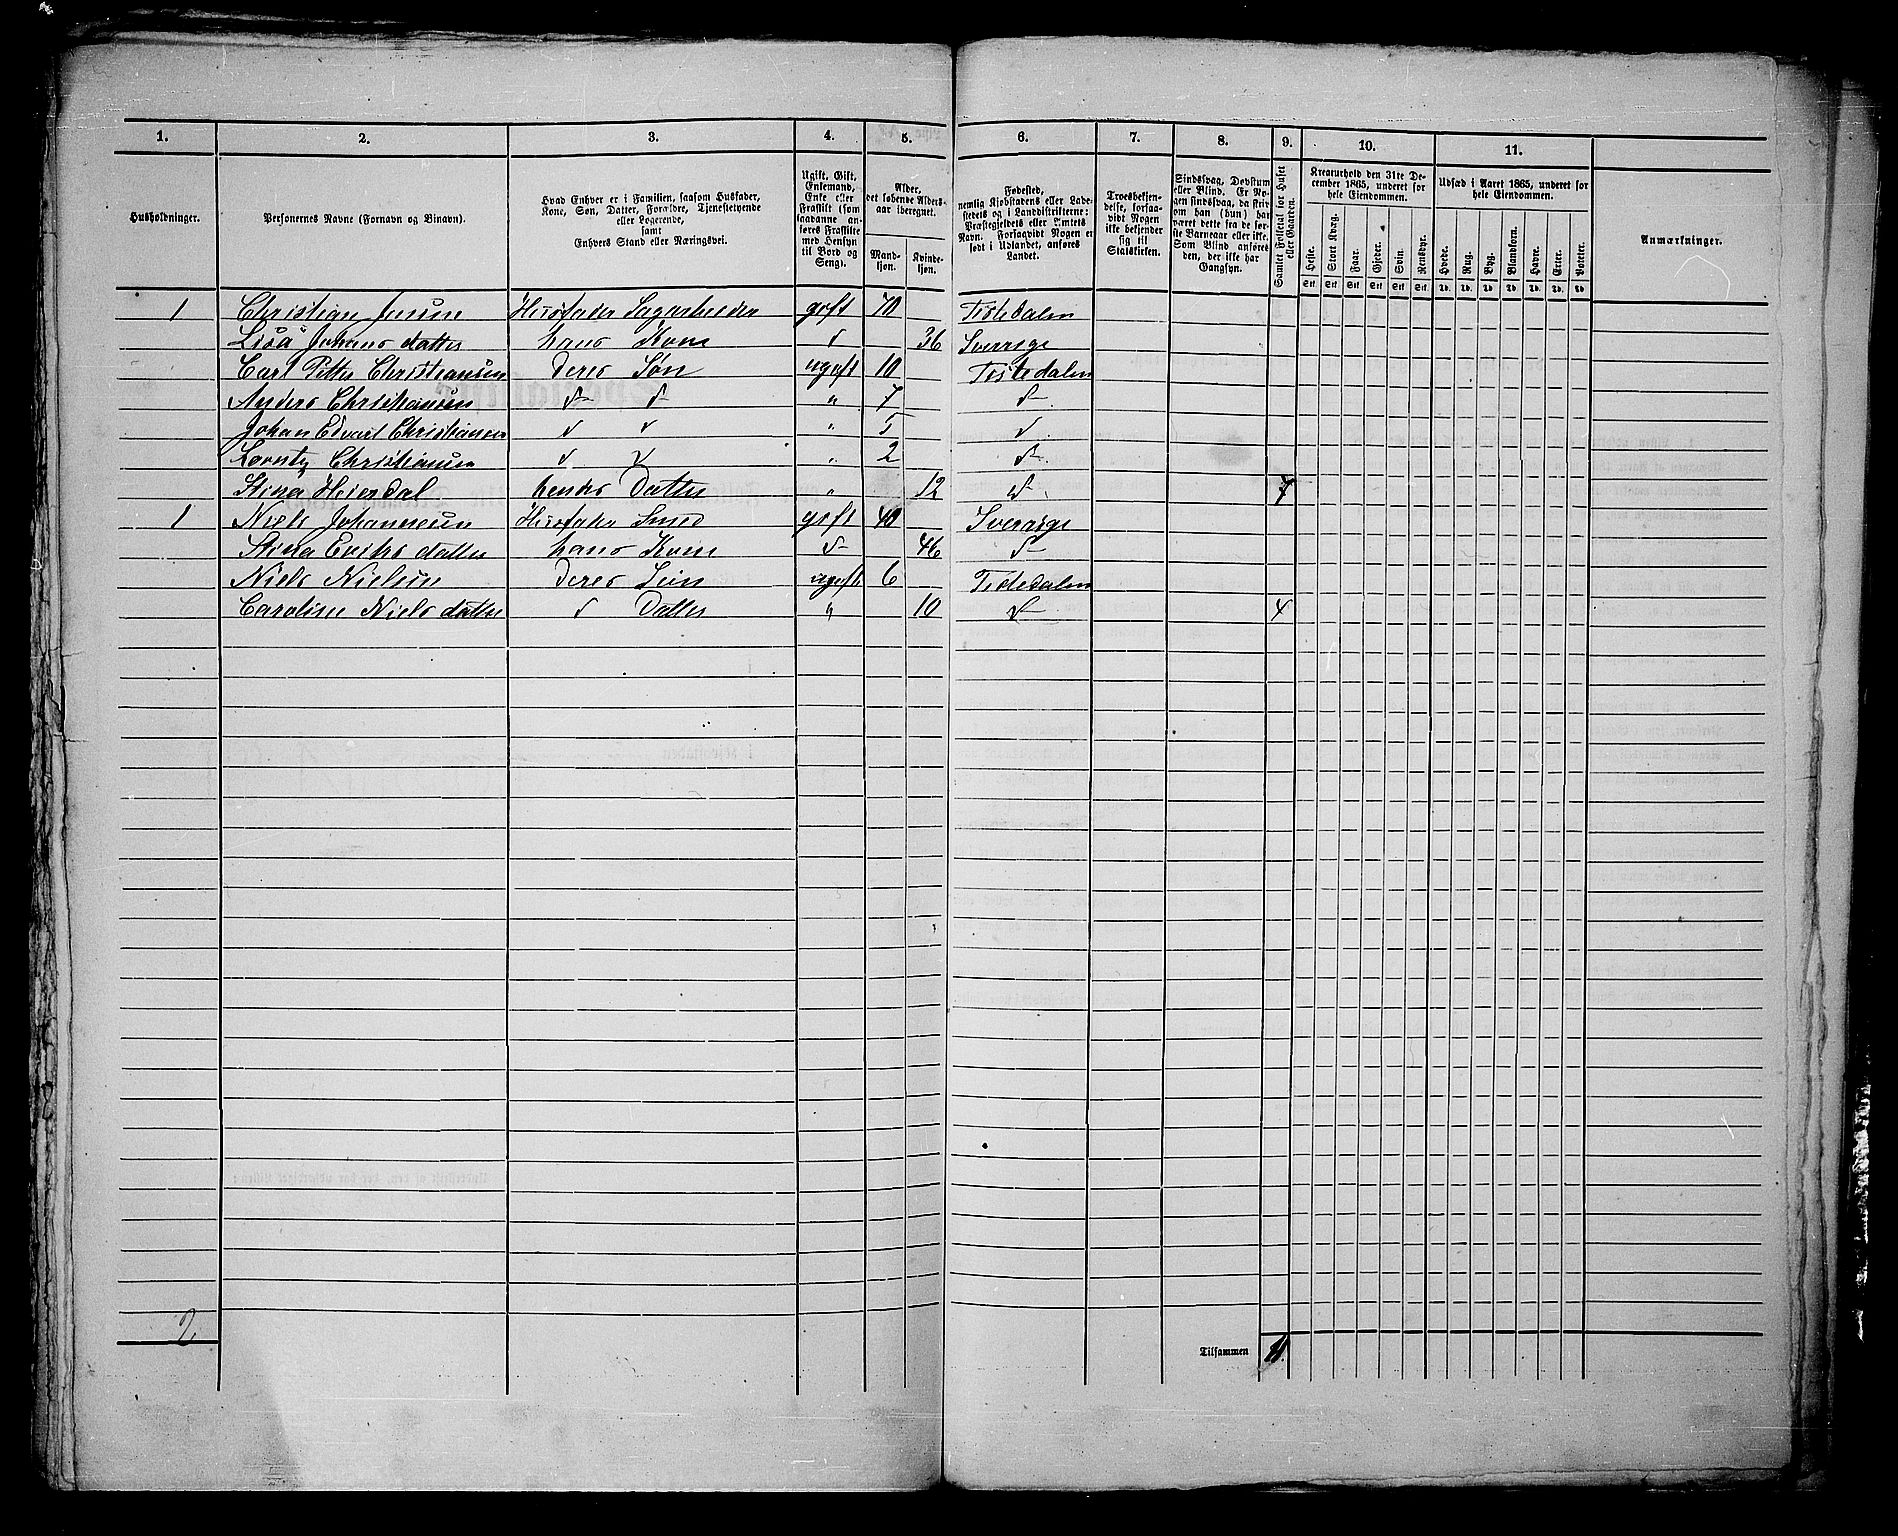 1. 2. 3. 4. 5. 6. 7. 8. 9. 10. 11.
Husholdninger.
Personernes Navne (Fornavn og Binavn).
Hvad Enhver er i Familien, saasom Husfader,
Kone, Søn, Datter, Forældre, Tjenestetyende
eller Logerende,
samt
Enhvers Stand eller Næringsvei.
Ugift, Gift,
Enkemand,
Enke eller
Fraskilt (som
saadanne an-
føres Fraskilte
med Hensyn
til Bord og
Seng).
Alder,
det løbende Alders-
aar iberegnet.
Mand-
kjøn.
Kvinde-
kjøn.
Fødested,
nemlig Kjøbstadens eller Lade-
stedets og i Landdistrikterne:
Præstegjeldets eller Amtets
Navn. Forsaavidt Nogen er
født i Udlandet, anføres
Landet.
Troesbekjen-
delse, forsaa-
vidt Nogen
ikke bekjender
sig til
Statskirken.
Sindssvag, Døvstum
eller Blind. Er No-
gen sindssvag, da skriv
om han (hun) har
været dette fra de før-
ste Barneaar eller ikke.
Som Blind anføres
den, der ikke har
Gangsyn.
Samlet Folketal for Huset
eller Gaarden.
Kreaturhold den 31te De-
cember 1865, underet for
hele Eiendommen.
Heste. Stort Kvæg. Faar. Gjeder. Svin. Rensdyr.
Stk. Stk. Stk. Stk. Stk. Stk.
Udsæd i Aaret 1865, underet for
hele Eiendommen.
Hvede. Rug. Byg. Blandkorn. Havre. Erter. Poteter.
Td. Td. Td. Td. Td. Td. Td.
Anmærkninger.
1 Christian Jensen Husfader Sagarbeider gift 70 Tistedalen
Lisa Johans datter hans Kone " 36 Sverrige
Carl Petter Christiansen deres Søn ugift 10 Tistedalen
Anders Christiansen " " " 7 "
Johan Edvart Christiansen " " " 5 "
Christiansen " " " 2 "
Stina Heierdal hendes Datter " 12 " 7
1 Niels Johannesen Husfader Smed gift 40 Sverrige
Stina Eriks datter hans Kone " 46 "
Niels Nielsen deres Søn ugift 6 Tistedalen
Caroline Niels datter " Datter " 10 " 4
2
Tilsammen 11.